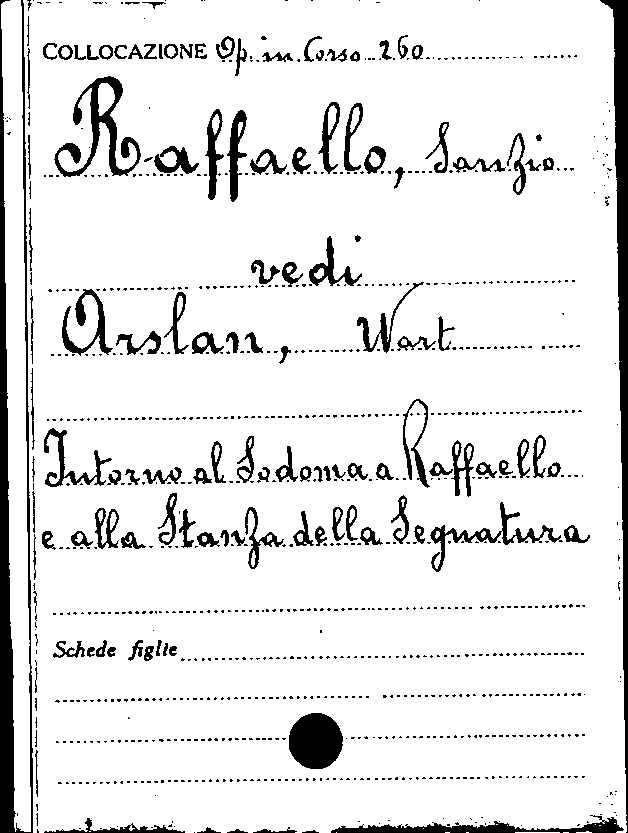 COLLOCAZIONE Op. in Corso 260
Raffaello, Sanzio
vedi
Arslan, Wart
Intorno al Sodoma a Raffaello
e alla Stanza della Segnatura
Schede figlie